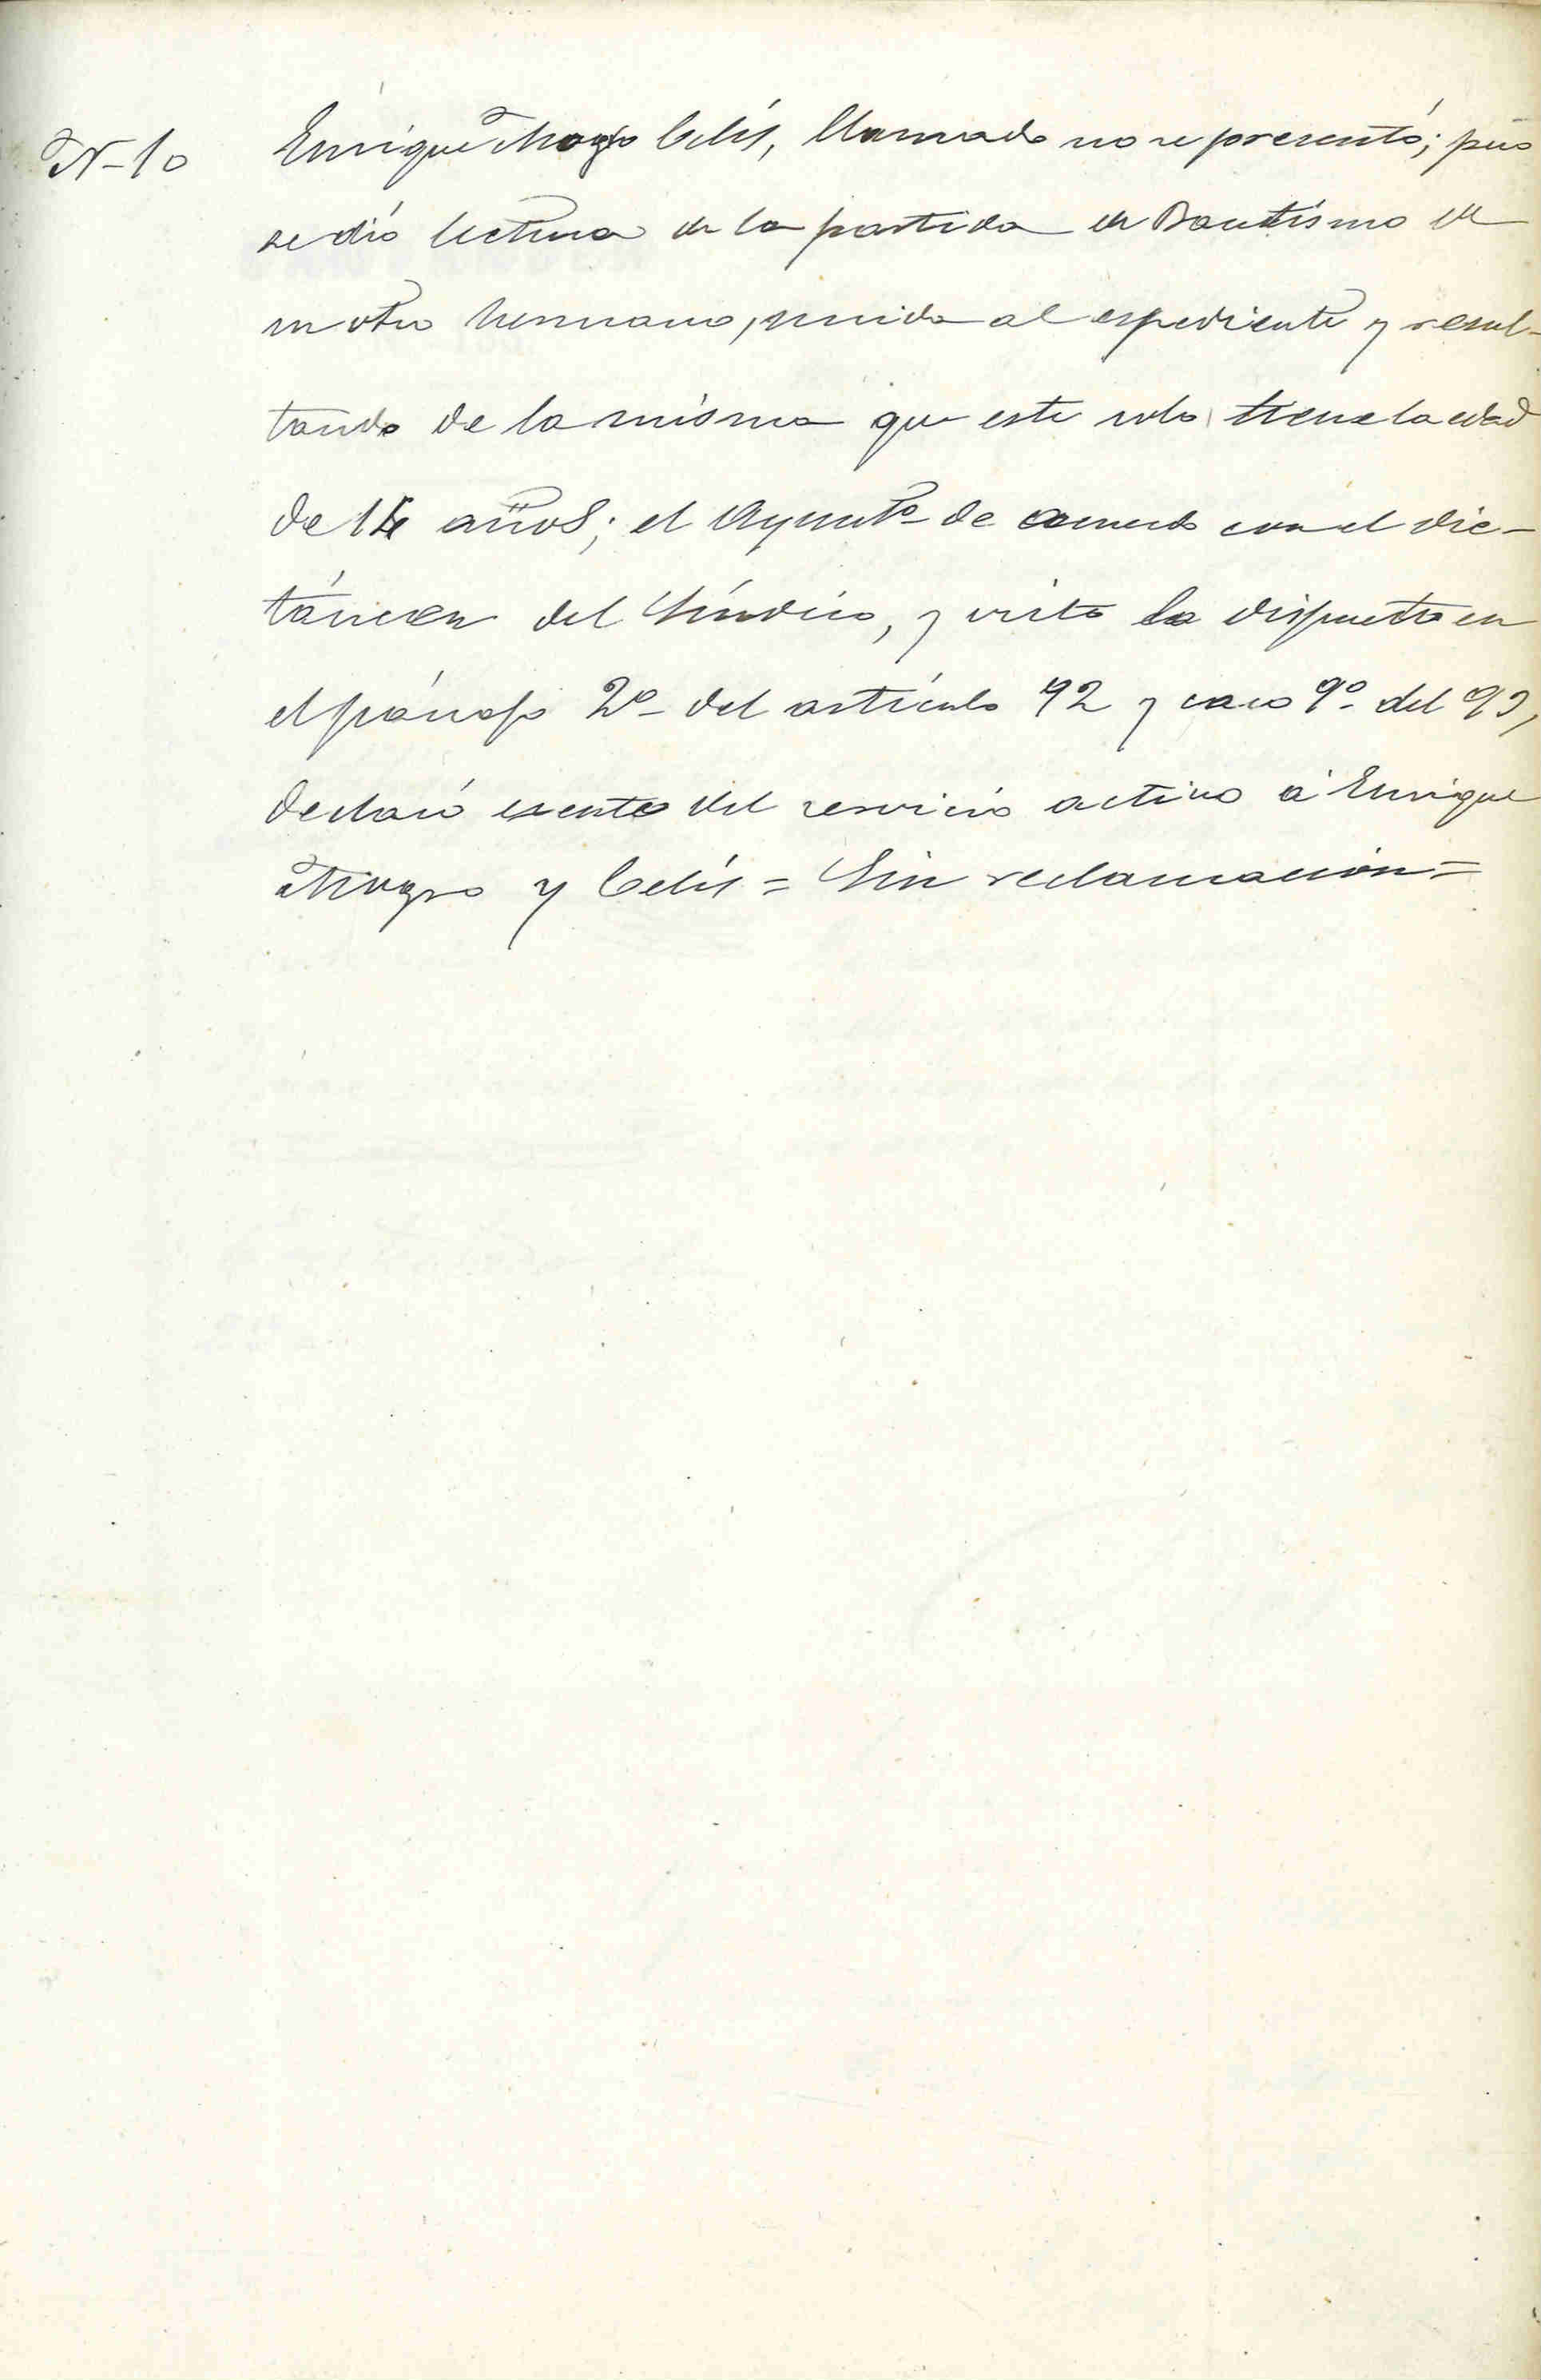 N-10 Enrique Mogro Celis, llamado no se presentó; pero
se dió lectura de la partida de Bautismo de
su otro hermano, unida al espediente y resul-
tando de la misma que este solo tiene la edad
de 14 años; el Ayuntº de acuerdo con el dic-
támen del Síndico, y visto lo dispuesto en
el párrafo 2º del artículo 92 y caso 9º del 93,
declaró esento del servicio activo á Enrique
Mogro y Celis = Sin reclamación =